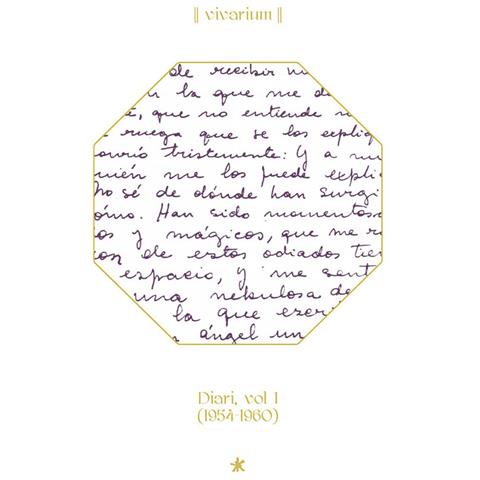 || vivarium ||
de recibir
la que me
que no entiende
ruega que se los expliq
onrió tristemente: Y a mi
uién me los puede expli
No sé de dónde han surgi
ómo. Han sido momentos
os y mágicos, que me r
de estos odiados tie
espacio, y me sent
una nebulosa de
la que ezer
ángel un
Diari, vol 1
(1954-1960)